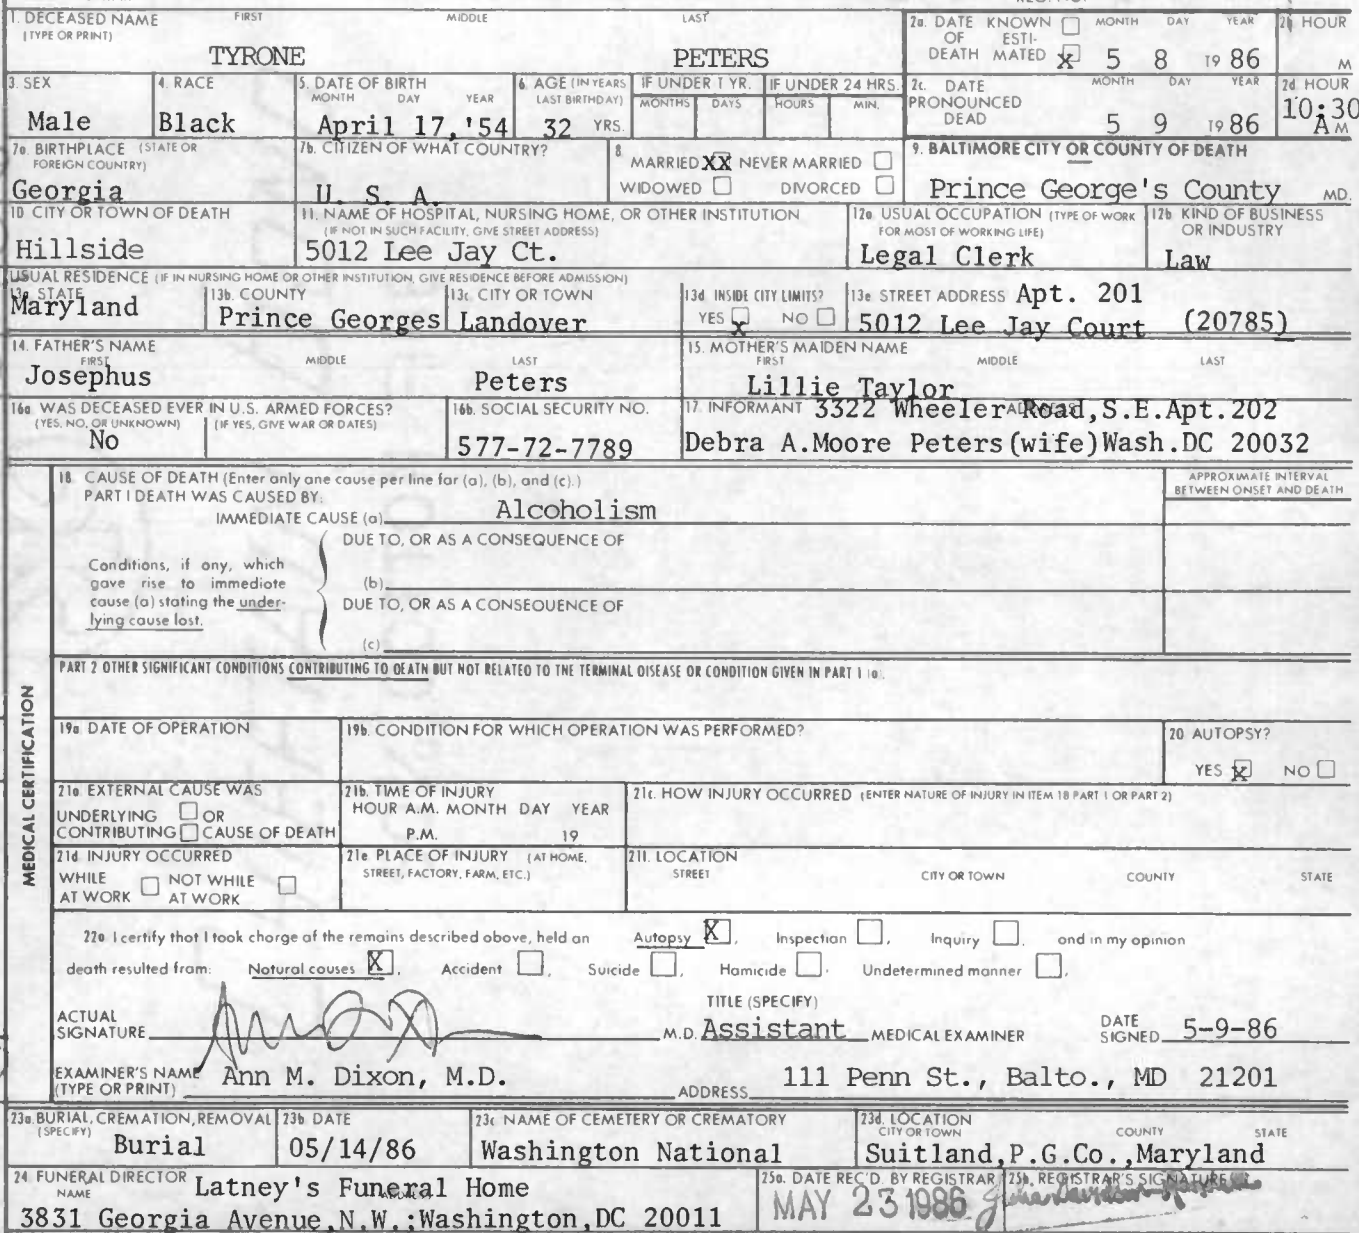 1. DECEASED NAME (TYPE OR PRINT) FIRST MIDDLE LAST
TYRONE PETERS
2a. DATE OF DEATH KNOWN ☐ ESTIMATED ☒ MONTH DAY YEAR 5 8 19 86
HOUR M
3. SEX Male
4. RACE Black
5. DATE OF BIRTH MONTH DAY YEAR April 17,'54
6. AGE (IN YEARS LAST BIRTHDAY) 32 YRS.
IF UNDER 1 YR. MONTHS DAYS
IF UNDER 24 HRS. HOURS MIN.
2c. DATE PRONOUNCED DEAD MONTH DAY YEAR 5 9 19 86
2d HOUR 10:30 A M
7a. BIRTHPLACE (STATE OR FOREIGN COUNTRY) Georgia
7b. CITIZEN OF WHAT COUNTRY? U. S. A.
8 MARRIED XX NEVER MARRIED ☐
WIDOWED ☐ DIVORCED ☐
9. BALTIMORE CITY OR COUNTY OF DEATH
Prince George's County MD.
10 CITY OR TOWN OF DEATH Hillside
11. NAME OF HOSPITAL, NURSING HOME, OR OTHER INSTITUTION
(IF NOT IN SUCH FACILITY, GIVE STREET ADDRESS)
5012 Lee Jay Ct.
12a USUAL OCCUPATION (TYPE OF WORK FOR MOST OF WORKING LIFE) Legal Clerk
12b KIND OF BUSINESS OR INDUSTRY Law
USUAL RESIDENCE (IF IN NURSING HOME OR OTHER INSTITUTION, GIVE RESIDENCE BEFORE ADMISSION)
13a STATE Maryland
13b. COUNTY Prince Georges
13c CITY OR TOWN Landover
13d INSIDE CITY LIMITS? YES ☒ NO ☐
13e STREET ADDRESS Apt. 201
5012 Lee Jay Court (20785)
14. FATHER'S NAME FIRST MIDDLE LAST
Josephus Peters
15. MOTHER'S MAIDEN NAME FIRST MIDDLE LAST
Lillie Taylor
16a WAS DECEASED EVER IN U.S. ARMED FORCES? (YES, NO, OR UNKNOWN) (IF YES, GIVE WAR OR DATES)
No
16b. SOCIAL SECURITY NO. 577-72-7789
17. INFORMANT 3322 Wheeler Road,S.E.Apt.202
Debra A.Moore Peters(wife)Wash.DC 20032
18 CAUSE OF DEATH (Enter only one cause per line for (a), (b), and (c).)
PART I DEATH WAS CAUSED BY:
IMMEDIATE CAUSE (a) Alcoholism
APPROXIMATE INTERVAL BETWEEN ONSET AND DEATH
DUE TO, OR AS A CONSEQUENCE OF
Conditions, if any, which gave rise to immediate cause (a) stating the underlying cause last.
(b)
DUE TO, OR AS A CONSEQUENCE OF
(c)
PART 2 OTHER SIGNIFICANT CONDITIONS CONTRIBUTING TO DEATH BUT NOT RELATED TO THE TERMINAL DISEASE OR CONDITION GIVEN IN PART 1 (a).
MEDICAL CERTIFICATION
19a DATE OF OPERATION
19b. CONDITION FOR WHICH OPERATION WAS PERFORMED?
20 AUTOPSY? YES ☒ NO ☐
21a EXTERNAL CAUSE WAS
UNDERLYING ☐ OR
CONTRIBUTING ☐ CAUSE OF DEATH
21b. TIME OF INJURY
HOUR A.M. MONTH DAY YEAR
P.M. 19
21c. HOW INJURY OCCURRED (ENTER NATURE OF INJURY IN ITEM 18 PART 1 OR PART 2)
21d INJURY OCCURRED
WHILE AT WORK ☐ NOT WHILE AT WORK ☐
21e PLACE OF INJURY (AT HOME, STREET, FACTORY, FARM, ETC.)
21f. LOCATION STREET CITY OR TOWN COUNTY STATE
22a I certify that I took charge of the remains described above, held an Autopsy ☒, Inspection ☐, Inquiry ☐, and in my opinion
death resulted from: Natural causes ☒, Accident ☐, Suicide ☐, Homicide ☐, Undetermined manner ☐,
ACTUAL SIGNATURE M.D. TITLE (SPECIFY) Assistant MEDICAL EXAMINER DATE SIGNED 5-9-86
EXAMINER'S NAME (TYPE OR PRINT) Ann M. Dixon, M.D. ADDRESS 111 Penn St., Balto., MD 21201
23a. BURIAL, CREMATION, REMOVAL (SPECIFY) Burial
23b DATE 05/14/86
23c NAME OF CEMETERY OR CREMATORY Washington National
23d. LOCATION CITY OR TOWN COUNTY STATE
Suitland,P.G.Co.,Maryland
24 FUNERAL DIRECTOR NAME Latney's Funeral Home
3831 Georgia Avenue,N.W.;Washington,DC 20011
25a. DATE REC'D. BY REGISTRAR MAY 23 1986
25b. REGISTRAR'S SIGNATURE